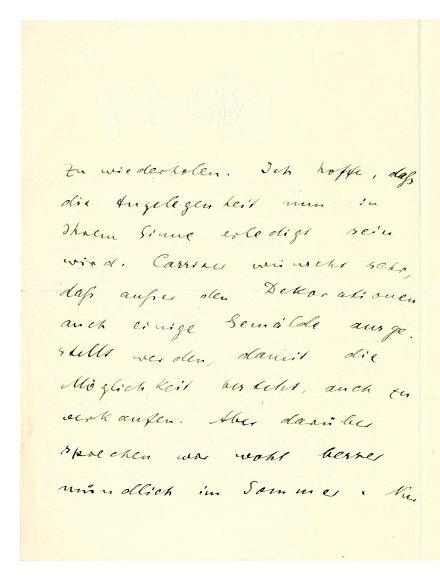 zu wiederholen. Ich hoffe, daß
die Angelegenheit nun in
Ihrem Sinne erledigt sein
wird. Cassirer wünscht sehr,
daß außer den Dekorationen
auch einige Gemälde ausge-
stellt werden, damit die
Möglichkeit besteht, auch zu
verkaufen. Aber darüber
sprechen wir wohl besser
mündlich im Sommer. Nur